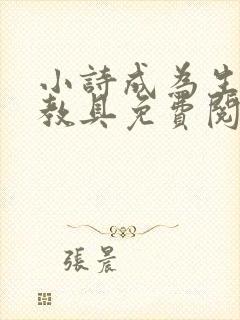 小詩成為生
教具免費閱
張晨